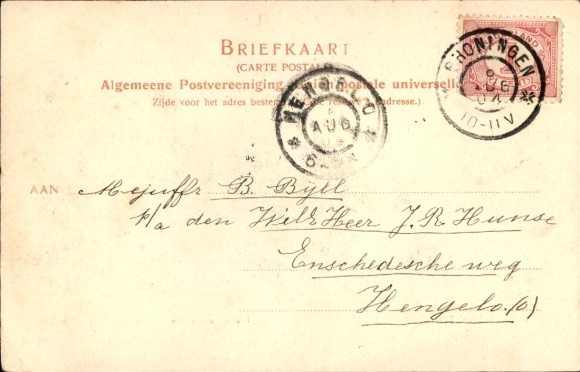 BRIEFKAART
(CARTE POSTALE)
Algemeene Postvereeniging Union postale universelle
Zijde voor het adres bestemd. (Côté réservé à l'adresse.)
GRONINGEN
8 AUG 04
10-11V
HENGELO
AUG
AAN Mejuffr B. Bijll
p/a den WelEd. Heer J. R. Hunse
Enschedesche weg
Hengelo. (O)